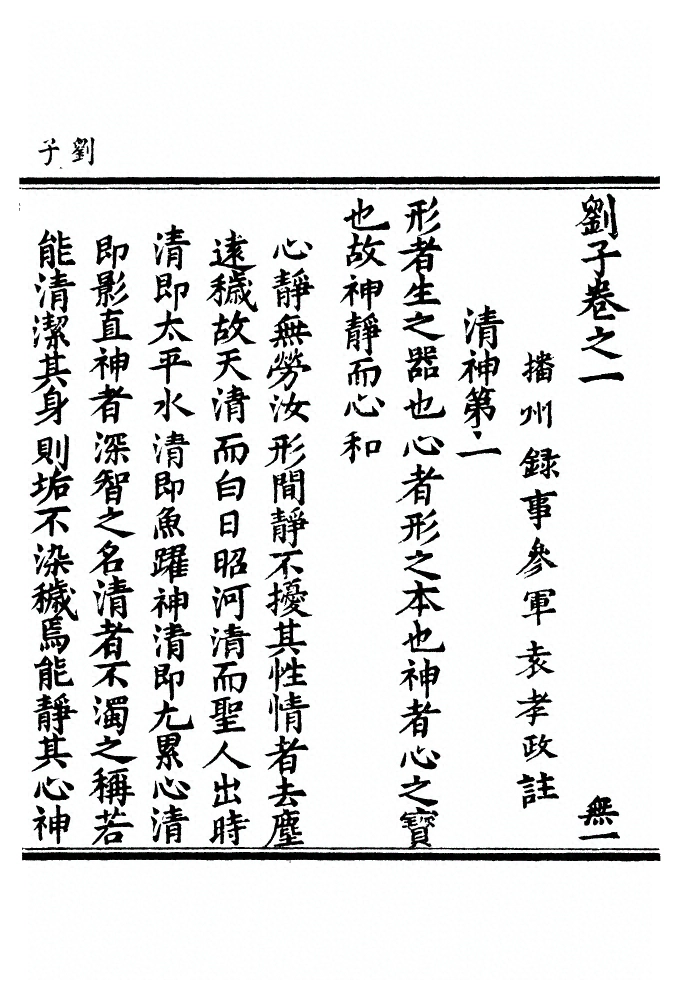 劉子
劉子卷之一 無一
播州錄事參軍袁孝政註
清神第二
形者生之器也心者形之本也神者心之寶
也故神靜而心和
心靜無勞汝形間靜不擾其性情者去塵
遠穢故天清而白日昭河清而聖人出時
清即太平水清即魚躍神清即尢累心清
即影直神者深智之名清者不濁之稱若
能清潔其身則垢不染穢焉能靜其心神